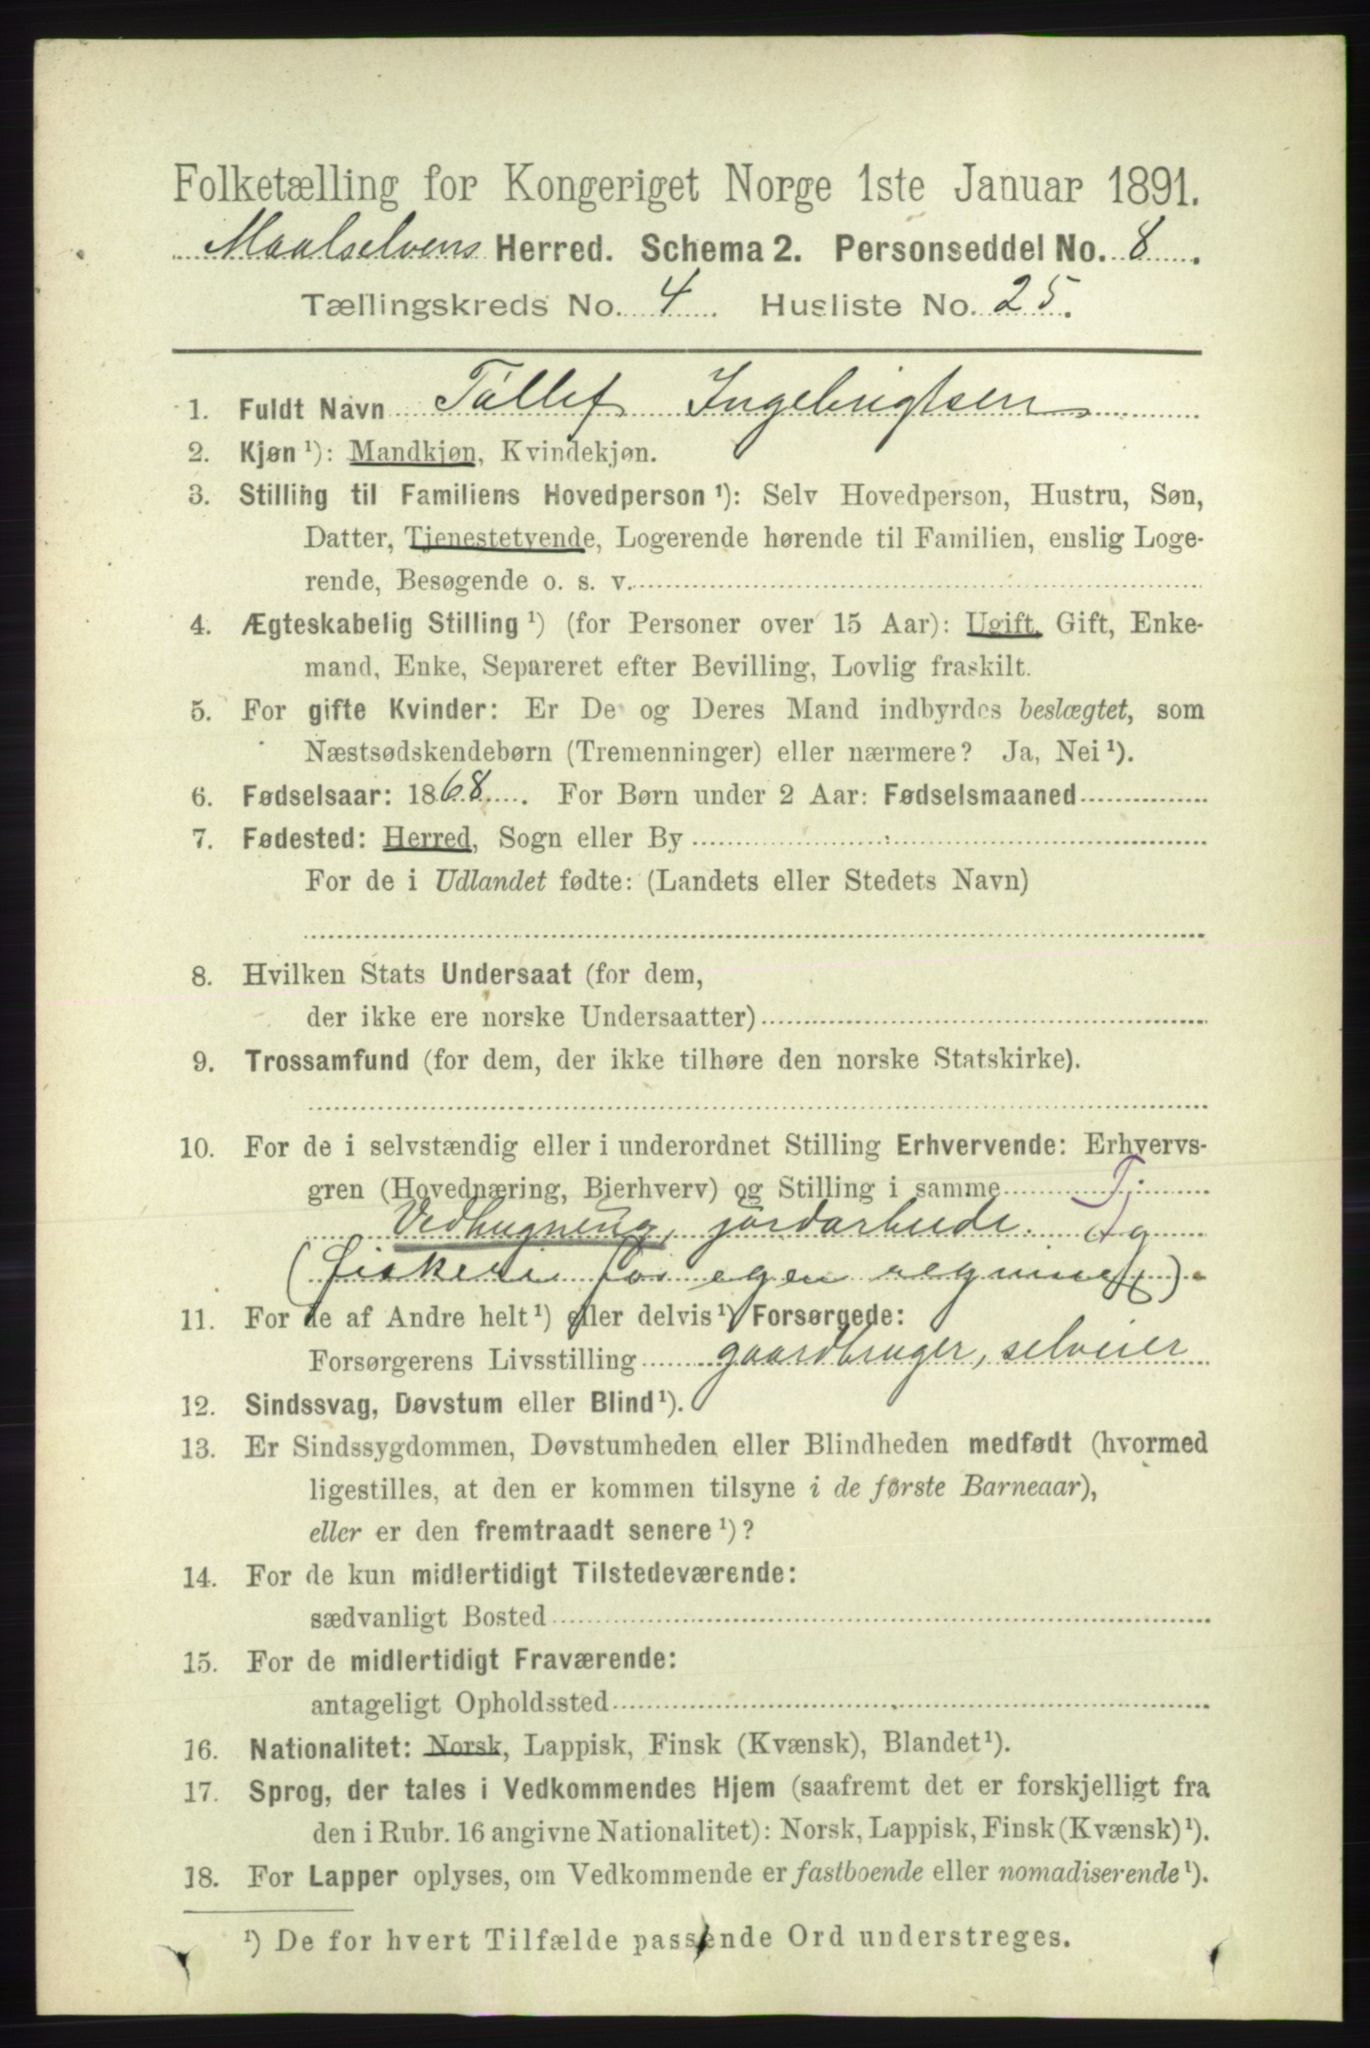 Folketælling for Kongeriget Norge 1ste Januar 1891.
Maalselvens Herred. Schema 2. Personseddel No. 8.
Tællingskreds No. 4. Husliste No. 25.
1. Fuldt Navn Tøllef Ingebrigtsen
2. Kjøn ¹): Mandkjøn, Kvindekjøn.
3. Stilling til Familiens Hovedperson ¹): Selv Hovedperson, Hustru, Søn,
Datter, Tjenestetyende, Logerende hørende til Familien, enslig Loge-
rende, Besøgende o. s. v.
4. Ægteskabelig Stilling ¹) (for Personer over 15 Aar): Ugift, Gift, Enke-
mand, Enke, Separeret efter Bevilling, Lovlig fraskilt.
5. For gifte Kvinder: Er De og Deres Mand indbyrdes beslægtet, som
Næstsødskendebørn (Tremenninger) eller nærmere? Ja, Nei ¹).
6. Fødselsaar: 1868. For Børn under 2 Aar: Fødselsmaaned
7. Fødested: Herred, Sogn eller By
For de i Udlandet fødte: (Landets eller Stedets Navn)
8. Hvilken Stats Undersaat (for dem,
der ikke ere norske Undersaatter)
9. Trossamfund (for dem, der ikke tilhøre den norske Statskirke).
10. For de i selvstændig eller i underordnet Stilling Erhvervende: Erhvervs-
gren (Hovednæring, Bierhverv) og Stilling i samme Tj.
Vedhugning, jordarbeide.
(fiskeri for egen regning).
11. For de af Andre helt ¹) eller delvis ¹) Forsørgede:
Forsørgerens Livsstilling gaardbruger, selveier
12. Sindssvag, Døvstum eller Blind ¹).
13. Er Sindssygdommen, Døvstumheden eller Blindheden medfødt (hvormed
ligestilles, at den er kommen tilsyne i de første Barneaar),
eller er den fremtraadt senere ¹)?
14. For de kun midlertidigt Tilstedeværende:
sædvanligt Bosted
15. For de midlertidigt Fraværende:
antageligt Opholdssted
16. Nationalitet: Norsk, Lappisk, Finsk (Kvænsk), Blandet ¹).
17. Sprog, der tales i Vedkommendes Hjem (saafremt det er forskjelligt fra
den i Rubr. 16 angivne Nationalitet): Norsk, Lappisk, Finsk (Kvænsk) ¹).
18. For Lapper oplyses, om Vedkommende er fastboende eller nomadiserende ¹).
¹) De for hvert Tilfælde passende Ord understreges.